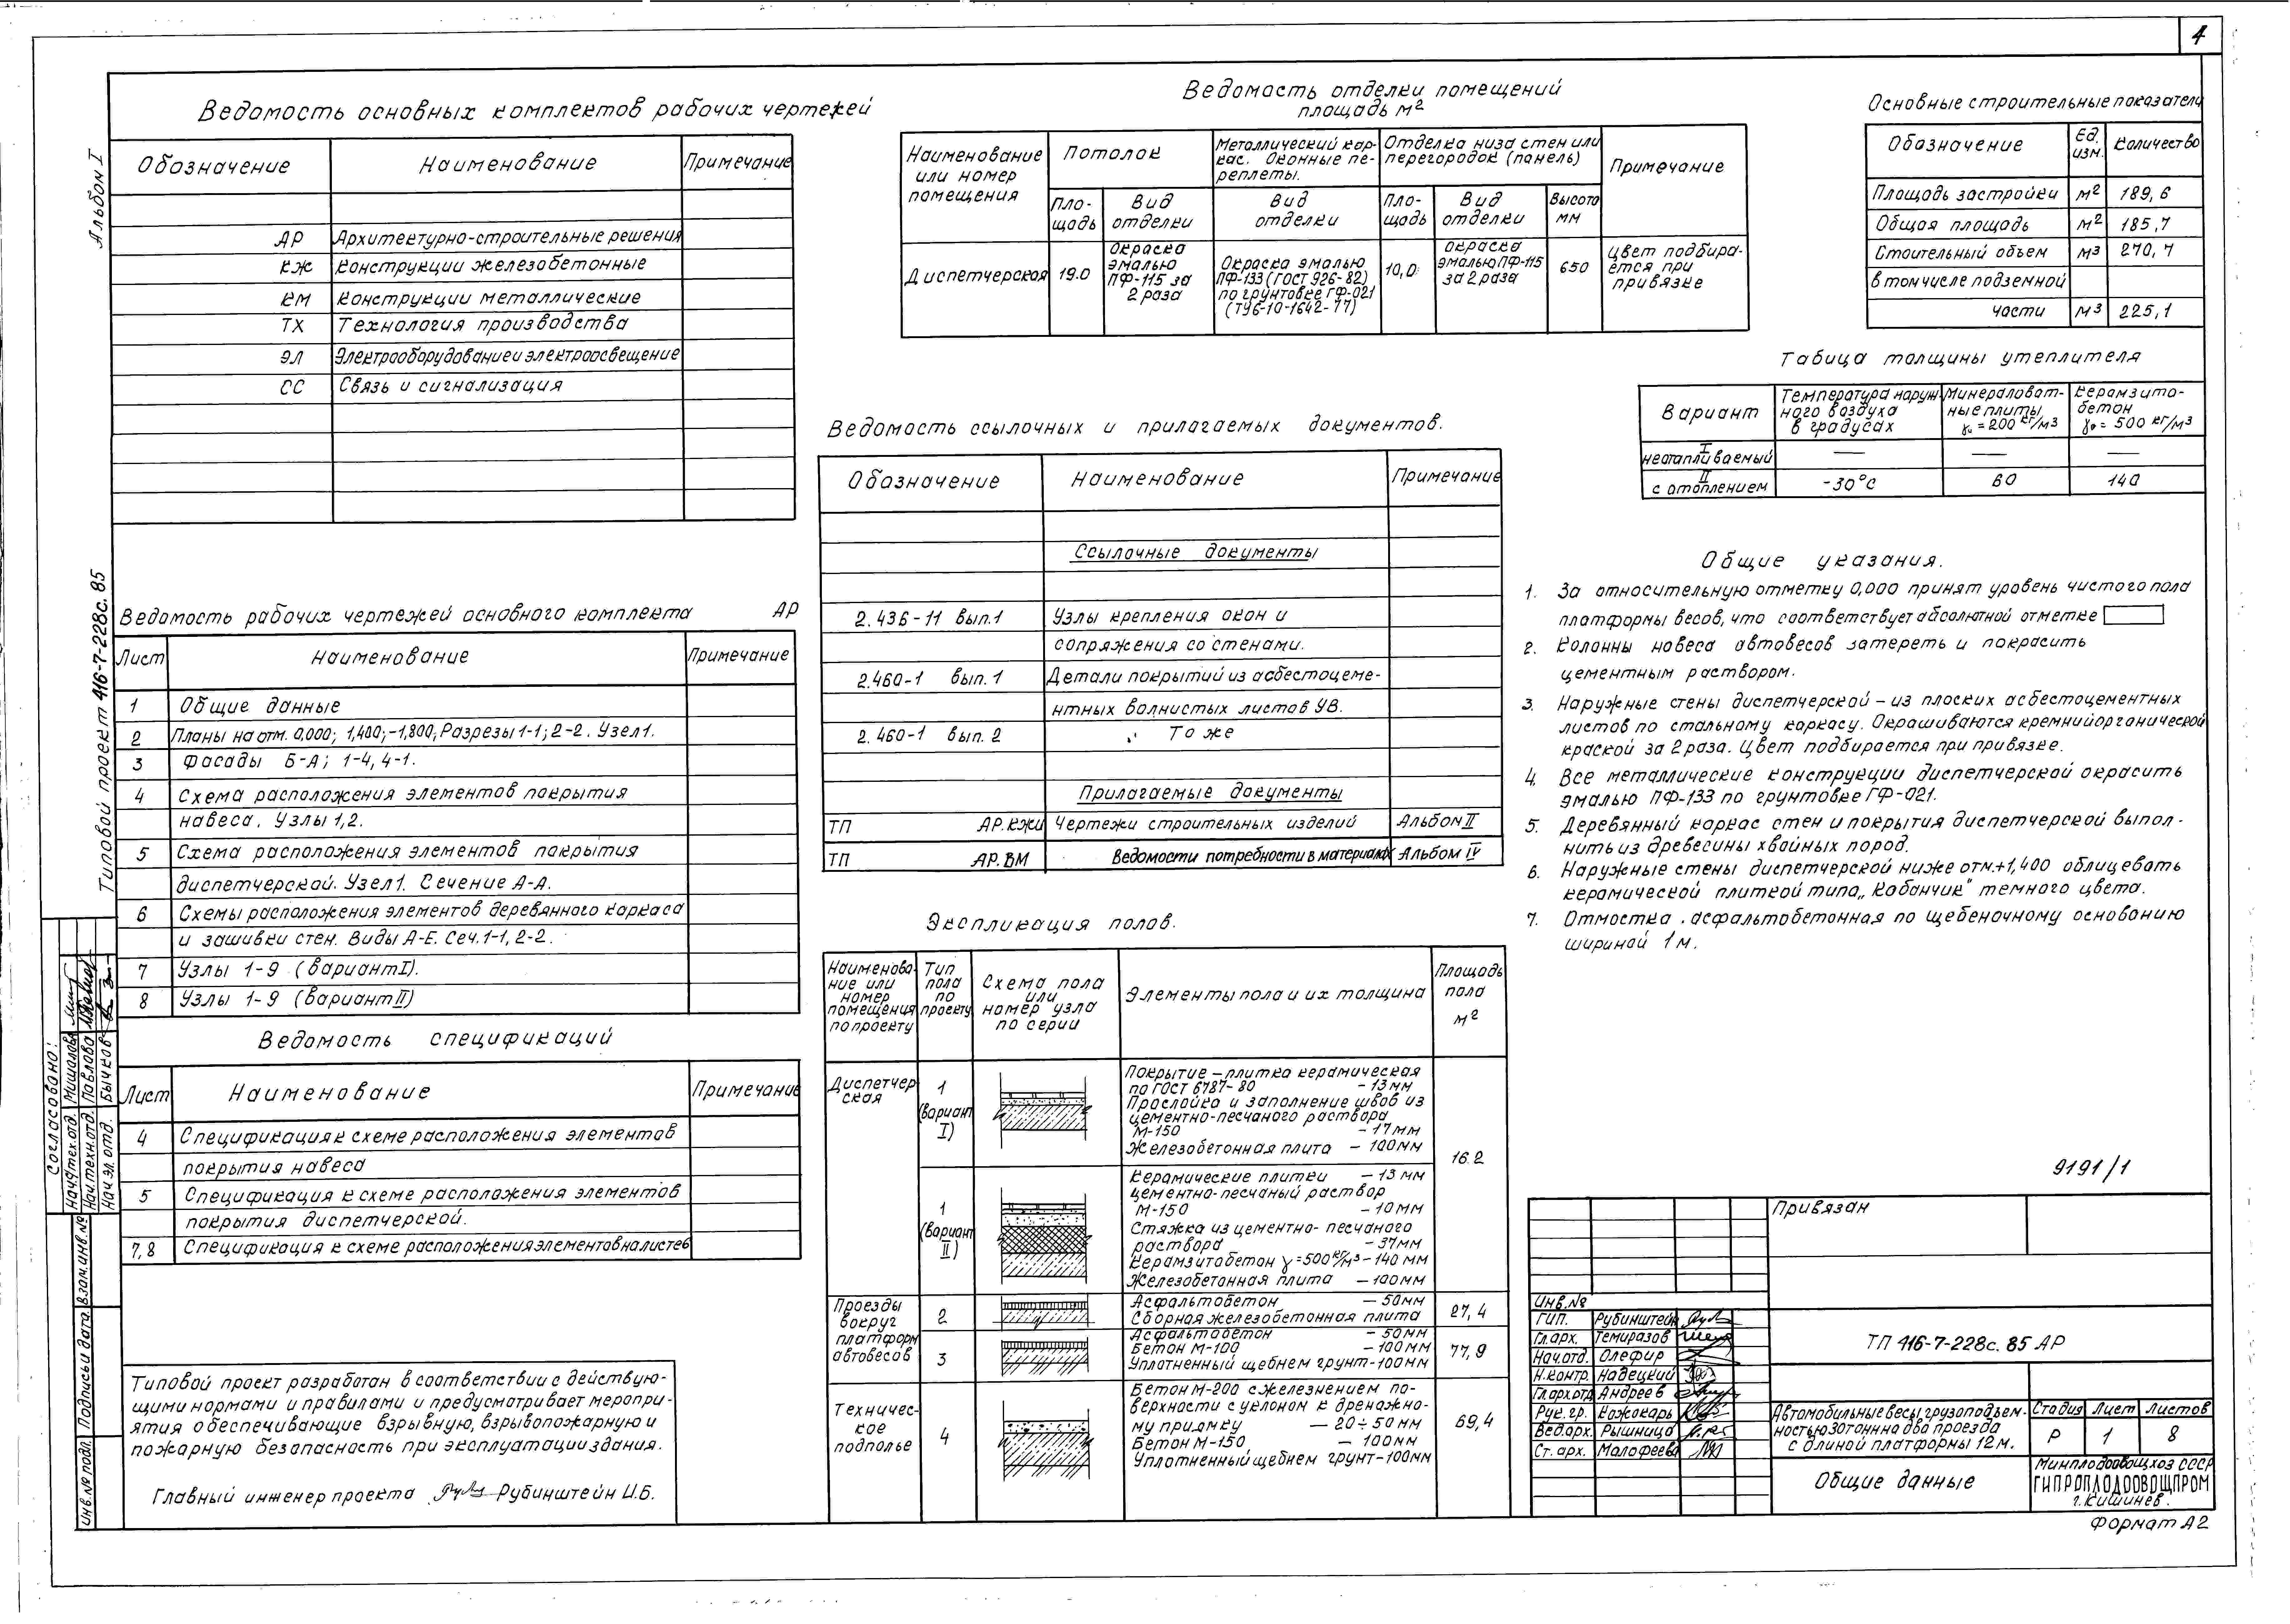 4
Альбом I
Типовой проект 416-7-228с.85
Ведомость основных комплектов рабочих чертежей
Обозначение Наименование Примечание
АР Архитектурно-строительные решения
КЖ Конструкции железобетонные
КМ Конструкции металлические
ТХ Технология производства
ЭЛ Электрооборудование и электроосвещение
СС Связь и сигнализация
Ведомость рабочих чертежей основного комплекта АР
Лист Наименование Примечание
1 Общие данные
2 Планы на отм. 0,000; 1,400; -1,800; Разрезы 1-1; 2-2. Узел 1.
3 Фасады Б-А; 1-4, 4-1.
4 Схема расположения элементов покрытия
навеса. Узлы 1,2.
5 Схема расположения элементов покрытия
диспетчерской. Узел 1. Сечение А-А.
6 Схемы расположения элементов деревянного каркаса
и зашивки стен. Виды А-Е. Сеч. 1-1, 2-2.
7 Узлы 1-9 (вариант I).
8 Узлы 1-9 (вариант II)
Ведомость спецификаций
Лист Наименование Примечание
4 Спецификация к схеме расположения элементов
покрытия навеса
5 Спецификация к схеме расположения элементов
покрытия диспетчерской.
7,8 Спецификация к схеме расположения элементов на листе 6
Типовой проект разработан в соответствии с действую-
щими нормами и правилами и предусматривает меропри-
ятия обеспечивающие взрывную, взрывопожарную и
пожарную безопасность при эксплуатации здания.
Главный инженер проекта Рубинштейн И.Б.
Согласовано:
Нач. тех. отд. Мишалова
Нач. техн. отд. Павлова
Нач. эл. отд. Бычков
Взам. инв. №
Подпись и дата
Инв. № подл.
Ведомость отделки помещений
площадь м2
Наименование или номер помещения
Потолок
Металлический кар-
кас. Оконные пе-
реплеты.
Отделка низа стен или
перегородок (панель)
Примечание
Пло-
щадь
Вид
отделки
Вид
отделки
Пло-
щадь
Вид
отделки
Высота
мм
Диспетчерская
19.0
Окраска
эмалью
ПФ-115 за
2 раза
Окраска эмалью
ПФ-133 (ГОСТ 926-82)
по грунтовке ГФ-021
(ТУ6-10-1642-77)
10,0
окраска
эмалью ПФ-115
за 2 раза
650
Цвет подбира-
ется при
привязке
Ведомость ссылочных и прилагаемых документов.
Обозначение Наименование Примечание
Ссылочные документы
2.436-11 вып.1 Узлы крепления окон и
сопряжения со стенами.
2.460-1 вып. 1 Детали покрытий из асбестоцеме-
нтных волнистых листов УВ.
2.460-1 вып. 2 То же
Прилагаемые документы
ТП АР.КЖИ Чертежи строительных изделий Альбом II
ТП АР.ВМ Ведомости потребности в материалах Альбом IV
Экспликация полов.
Наименова-
ние или
номер
помещения
по проекту
Тип
пола
по
проекту
Схема пола
или
номер узла
по серии
Элементы пола и их толщина
Площадь
пола
м2
Диспетчер
ская
1
(вариант
I)
Покрытие - плитка керамическая
по ГОСТ 6787-80 - 13мм
Прослойка и заполнение швов из
цементно-песчаного раствора
М-150 - 17мм
Железобетонная плита - 100мм
16.2
1
(Вариант
II)
Керамические плитки - 13мм
цементно-песчаный раствор
М-150 - 10мм
Стяжка из цементно-песчаного
раствора - 37мм
Керамзитобетон γ=500 кг/м3 - 140 мм
Железобетонная плита - 100мм
Проезды
вокруг
платформ
автовесов
2
Асфальтобетон - 50мм
Сборная железобетонная плита
27,4
3
Асфальтобетон - 50мм
Бетон М-100 - 100мм
Уплотненный щебнем грунт - 100мм
77,9
Техничес-
кое
подполье
4
Бетон М-200 с железнением по-
верхности с уклоном к дренажно-
му приямку — 20÷50 мм
Бетон М-150 - 100мм
Уплотненный щебнем грунт - 100мм
69,4
Основные строительные показатели
Обозначение Ед. изм. Количество
Площадь застройки м2 189,6
Общая площадь м2 185,7
Стоительный объем м3 270,7
в том числе подземной
части м3 225,1
Табица толщины утеплителя
Вариант
Температура наруж-
ного воздуха
в градусах
Минераловат-
ные плиты
γ = 200 кг/м3
Керамзито-
бетон
γ = 500 кг/м3
I
неотапливаемый — — —
II
с отоплением -30°С 60 140
Общие указания.
1. За относительную отметку 0,000 принят уровень чистого пола
платформы весов, что соответствует абсолютной отметке
2. Колонны навеса автовесов затереть и покрасить
цементным раствором.
3. Наружные стены диспетчерской - из плоских асбестоцементных
листов по стальному каркасу. Окрашиваются кремнийорганической
краской за 2 раза. Цвет подбирается при привязке.
4. Все металлические конструкции диспетчерской окрасить
эмалью ПФ-133 по грунтовке ГФ-021.
5. Деревянный каркас стен и покрытия диспетчерской выпол-
нить из древесины хвойных пород.
6. Наружные стены диспетчерской ниже отм.+1,400 облицевать
керамической плиткой типа „Кабанчик" темного цвета.
7. Отмостка асфальтобетонная по щебеночному основанию
шириной 1 м.
9191/1
Привязан
Инв. №
ГИП. Рубинштейн
Гл. арх. Темиразов
Нач. отд. Олефир
Н. контр. Надецкий
Гл. арх. отд. Андреев
Рук. гр. Кожокарь
Вед. арх. Рышница
Ст. арх. Малофеева
ТП 416-7-228с.85 АР
Автомобильные весы грузоподъем-
ностью 30 тонн на два проезда
с длиной платформы 12 м.
Стадия Лист Листов
Р 1 8
Общие данные
Минплодоовощхоз СССР
ГИПРОПЛОДООВОЩПРОМ
г. Кишинев.
Формат А2